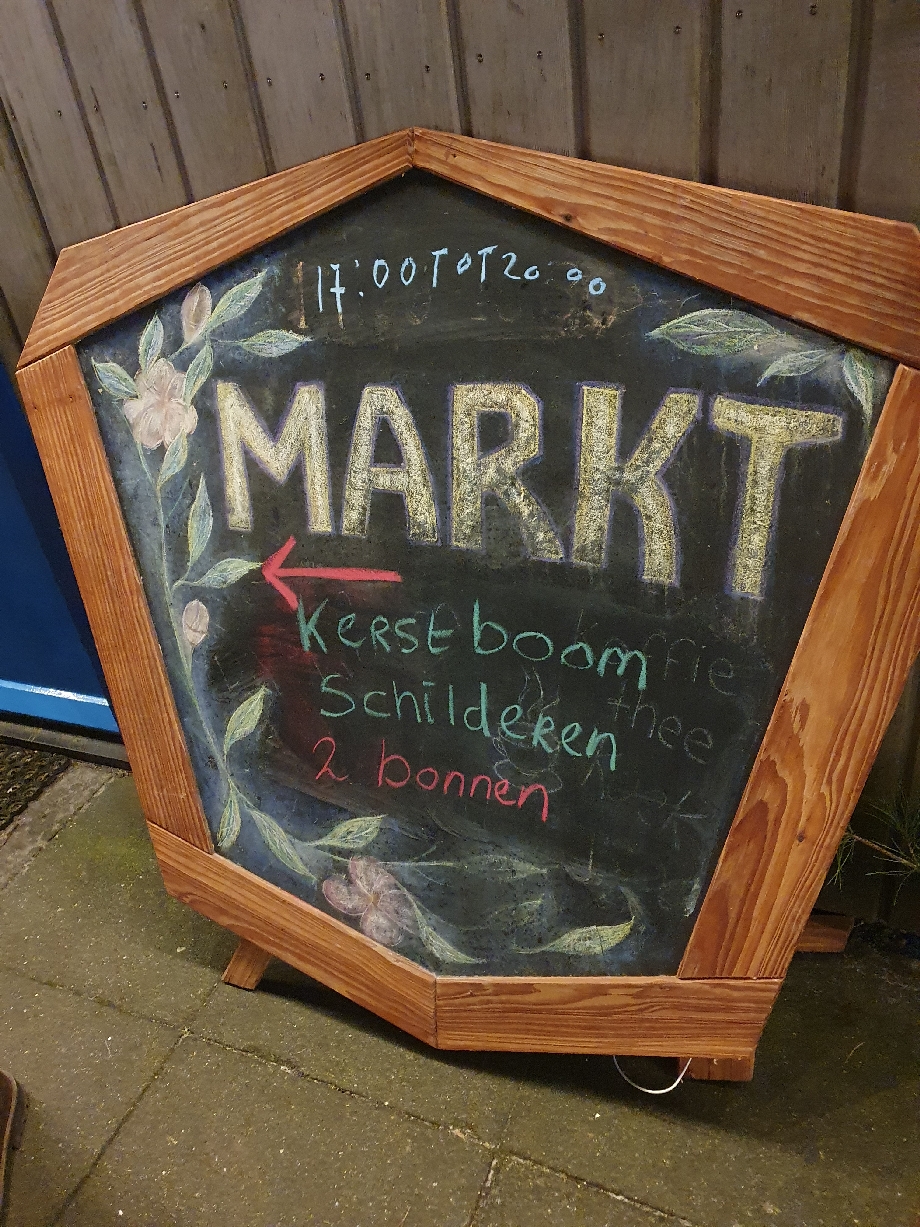 17:00 TOT 20:00
MARKT
Kerstboom
Schilderen
2 bonnen
thee